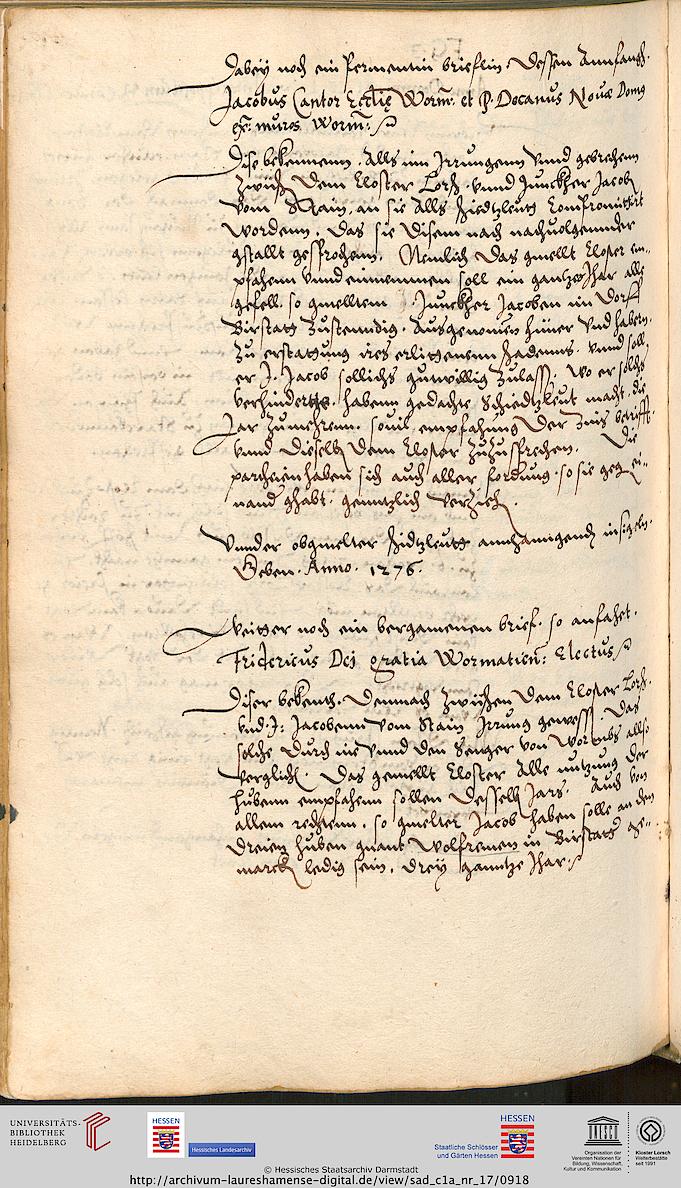 Dabeÿ noch ein permentin brieflin. Dessen Annfanngk.
Jacobus Cantor Ecclię Worm̄. et P. Decanus Novæ Domg
ex. muros Worm̄:
Dise bekennenn. Alls inn Irrungenn vnnd gebrechenn
Zwüsch dem Closter Lorsch. vnnd Junckher Jacob
vom Stain, an sie Alls schiedtzleutt Compromittirt
wordenn. Das sie Disenn nach nachuolgennder
gstallt gesprochenn. Nemlich das gmellt Closter em-
pfahenn vnnd einnemmen soll ein gantzes Jhar alle
gefell. so gmelltem Junckher Jacoben im Dorff
Birstatt Zustenndig. Ausgenomen hüner vnd habern.
Zu erstattung ires erlittenenn schadenns. vnnd soll
er J. Jacob sollichs gutwillig Zulassē. Wo er solchs
verhinderte. habenn gedachte Schiedtzleut macht die
Jar Zumehrenn. souil empfahung der Zins betrifft.
vnnd dieselb dem Closter Zuzusprechen. Die
partheien haben sich auch aller fordrung. so sie gegen ei-
nand ghabt. genntzlich verzich.
Vnnder obgmelter schidtzleutt annhanngendē insigeln.
Geben. Anno. 1276.
Weitter noch ein bergamenen brief. so anfahet.
Fridericus Dei gratia Wormatien: Electus
Diser bekenth. Demnach Zwüschen dem Closter Lorsch.
vnd. J: Jacobenn vom Stain Irrung gewesst. Das
solche durch ine vnnd den Senger von Wormbs allso
verglichē. Das gemellt Closter Alle nutzung der
hubenn empfahenn sollen desselb Jars. Auch von
allem rechtenn. so gmelter Jacob haben solle an den
dreien huben gnant Wolfremen in Birstatt ge-
marck ledig sein. dreÿ ganntze Jhar.
UNIVERSITÄTS-
BIBLIOTHEK
HEIDELBERG
HESSEN
Hessisches Landesarchiv
HESSEN
Staatliche Schlösser
und Gärten Hessen
UNESCO
Organisation der
Vereinten Nationen für
Bildung, Wissenschaft,
Kultur und Kommunikation
Kloster Lorsch
Welterbestätte
seit 1991
© Hessisches Staatsarchiv Darmstadt
http://archivum-laureshamense-digital.de/view/sad_c1a_nr_17/0918